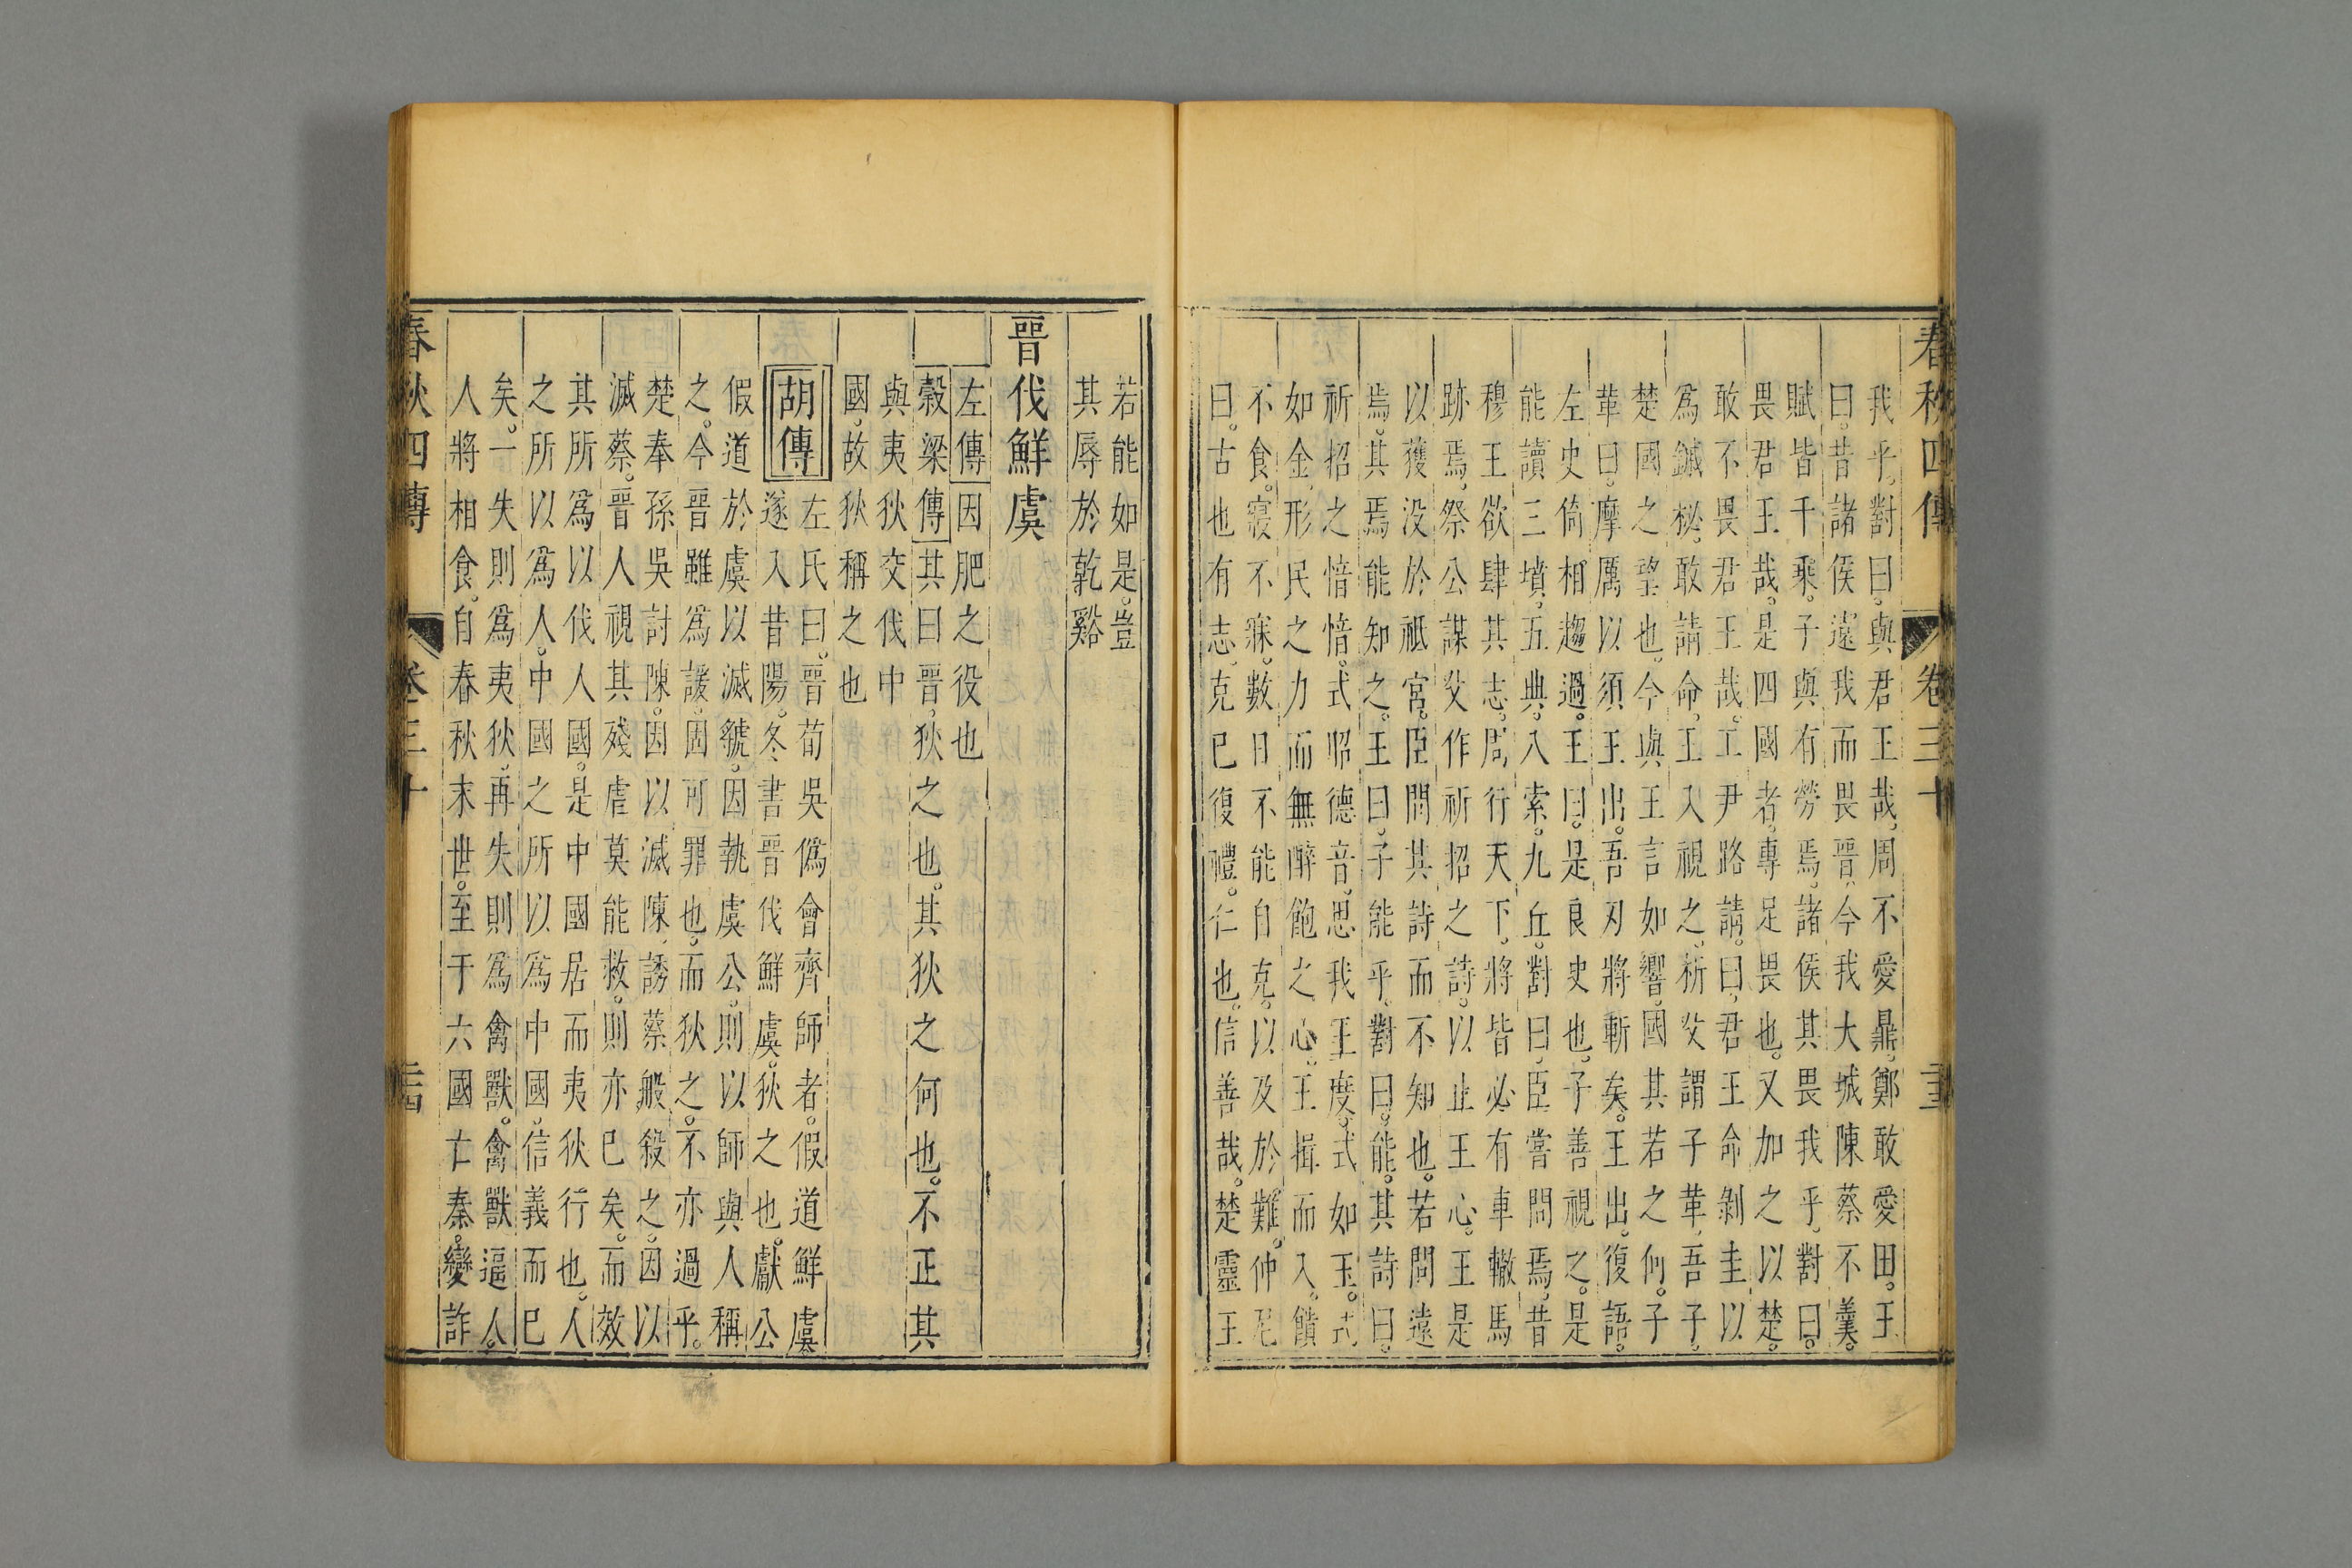 春秋四傳 卷三十 二十三
我乎。對曰。與君王哉。周不愛鼎。鄭敢愛田。王
曰。昔諸侯遠我而畏晉。今我大城陳蔡不羹。
賦皆千乘。子與有勞焉。諸侯其畏我乎。對曰。
畏君王哉。是四國者。專足畏也。又加之以楚。
敢不畏君王哉。工尹路請。曰。君王命剝圭以
爲鏚柲。敢請命。王入視之。析父謂子革。吾子。
楚國之望也。今與王言如響。國其若之何。子
革曰。摩厲以須。王出。吾刃將斬矣。王出。復語。
左史倚相趨過。王曰。是良史也。子善視之。是
能讀三墳。五典。八索。九丘。對曰。臣嘗問焉。昔
穆王欲肆其志。周行天下。將皆必有車轍馬
跡焉。祭公謀父作祈招之詩。以止王心。王是
以獲没於祇宮。臣問其詩而不知也。若問遠
焉。其焉能知之。王曰。子能乎。對曰。能。其詩曰。
祈招之愔愔。式昭德音。思我王度。式如玉。式
如金。形民之力而無醉飽之心。王揖而入。饋
不食。寢不寐。數日不能自克。以及於難。仲尼
曰。古也有志。克已復禮。仁也。信善哉。楚靈王
若能如是。豈
其辱於乾谿
晉伐鮮虞
左傳因肥之役也
榖梁傳其曰晉。狄之也。其狄之何也。不正其
與夷狄交伐中
國。故狄稱之也
胡傳左氏曰。晉荀吳僞會齊師者。假道鮮虞
遂入昔陽。冬書晉伐鮮虞。狄之也。獻公
假道於虞以滅虢。因執虞公。則以師與人稱
之。今晉雖爲諼。固可罪也。而狄之。不亦過乎。
楚奉孫吳討陳。因以滅陳。誘蔡般殺之。因以
滅蔡。晉人視其殘虐莫能救。則亦已矣。而效
其所爲以伐人國。是中國居而夷狄行也。人
之所以爲人。中國之所以爲中國。信義而已
矣。一失則爲夷狄。再失則爲禽獸。禽獸逼人。
人將相食。自春秋末世。至于六國亡秦。變詐
春秋四傳 卷三十